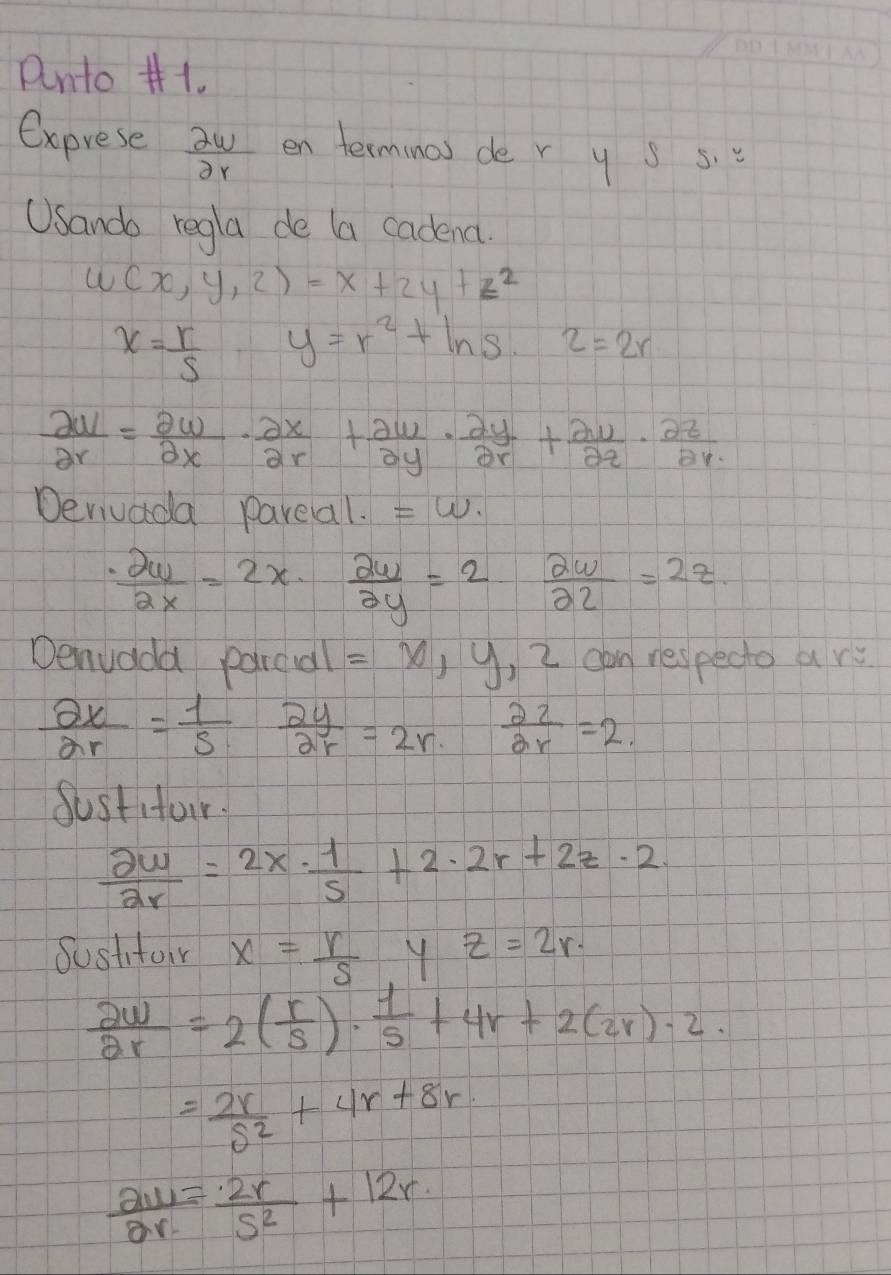 DD | MM | AA
Punto #1.
Exprese ∂w/∂r en terminos de r y s si:
Usando regla de la cadena.
w(x, y, z) = x + 2y + z²
x = r/s y = r² + ln s. z = 2r.
∂w/∂r = ∂w/∂x · ∂x/∂r + ∂w/∂y · ∂y/∂r + ∂w/∂z · ∂z/∂r.
Derivada parcial. = w.
∂w/∂x = 2x. ∂w/∂y = 2 ∂w/∂z = 2z.
Derivada parcial = x, y, z con respecto a r:
∂x/∂r = 1/s. ∂y/∂r = 2r. ∂z/∂r = 2.
Sustituir.
∂w/∂r = 2x · 1/s + 2 · 2r + 2z · 2.
Sustituir x = r/s y z = 2r.
∂w/∂r = 2(r/s) · 1/s + 4r + 2(2r) · 2.
= 2r/s² + 4r + 8r.
∂w/∂r = 2r/s² + 12r.